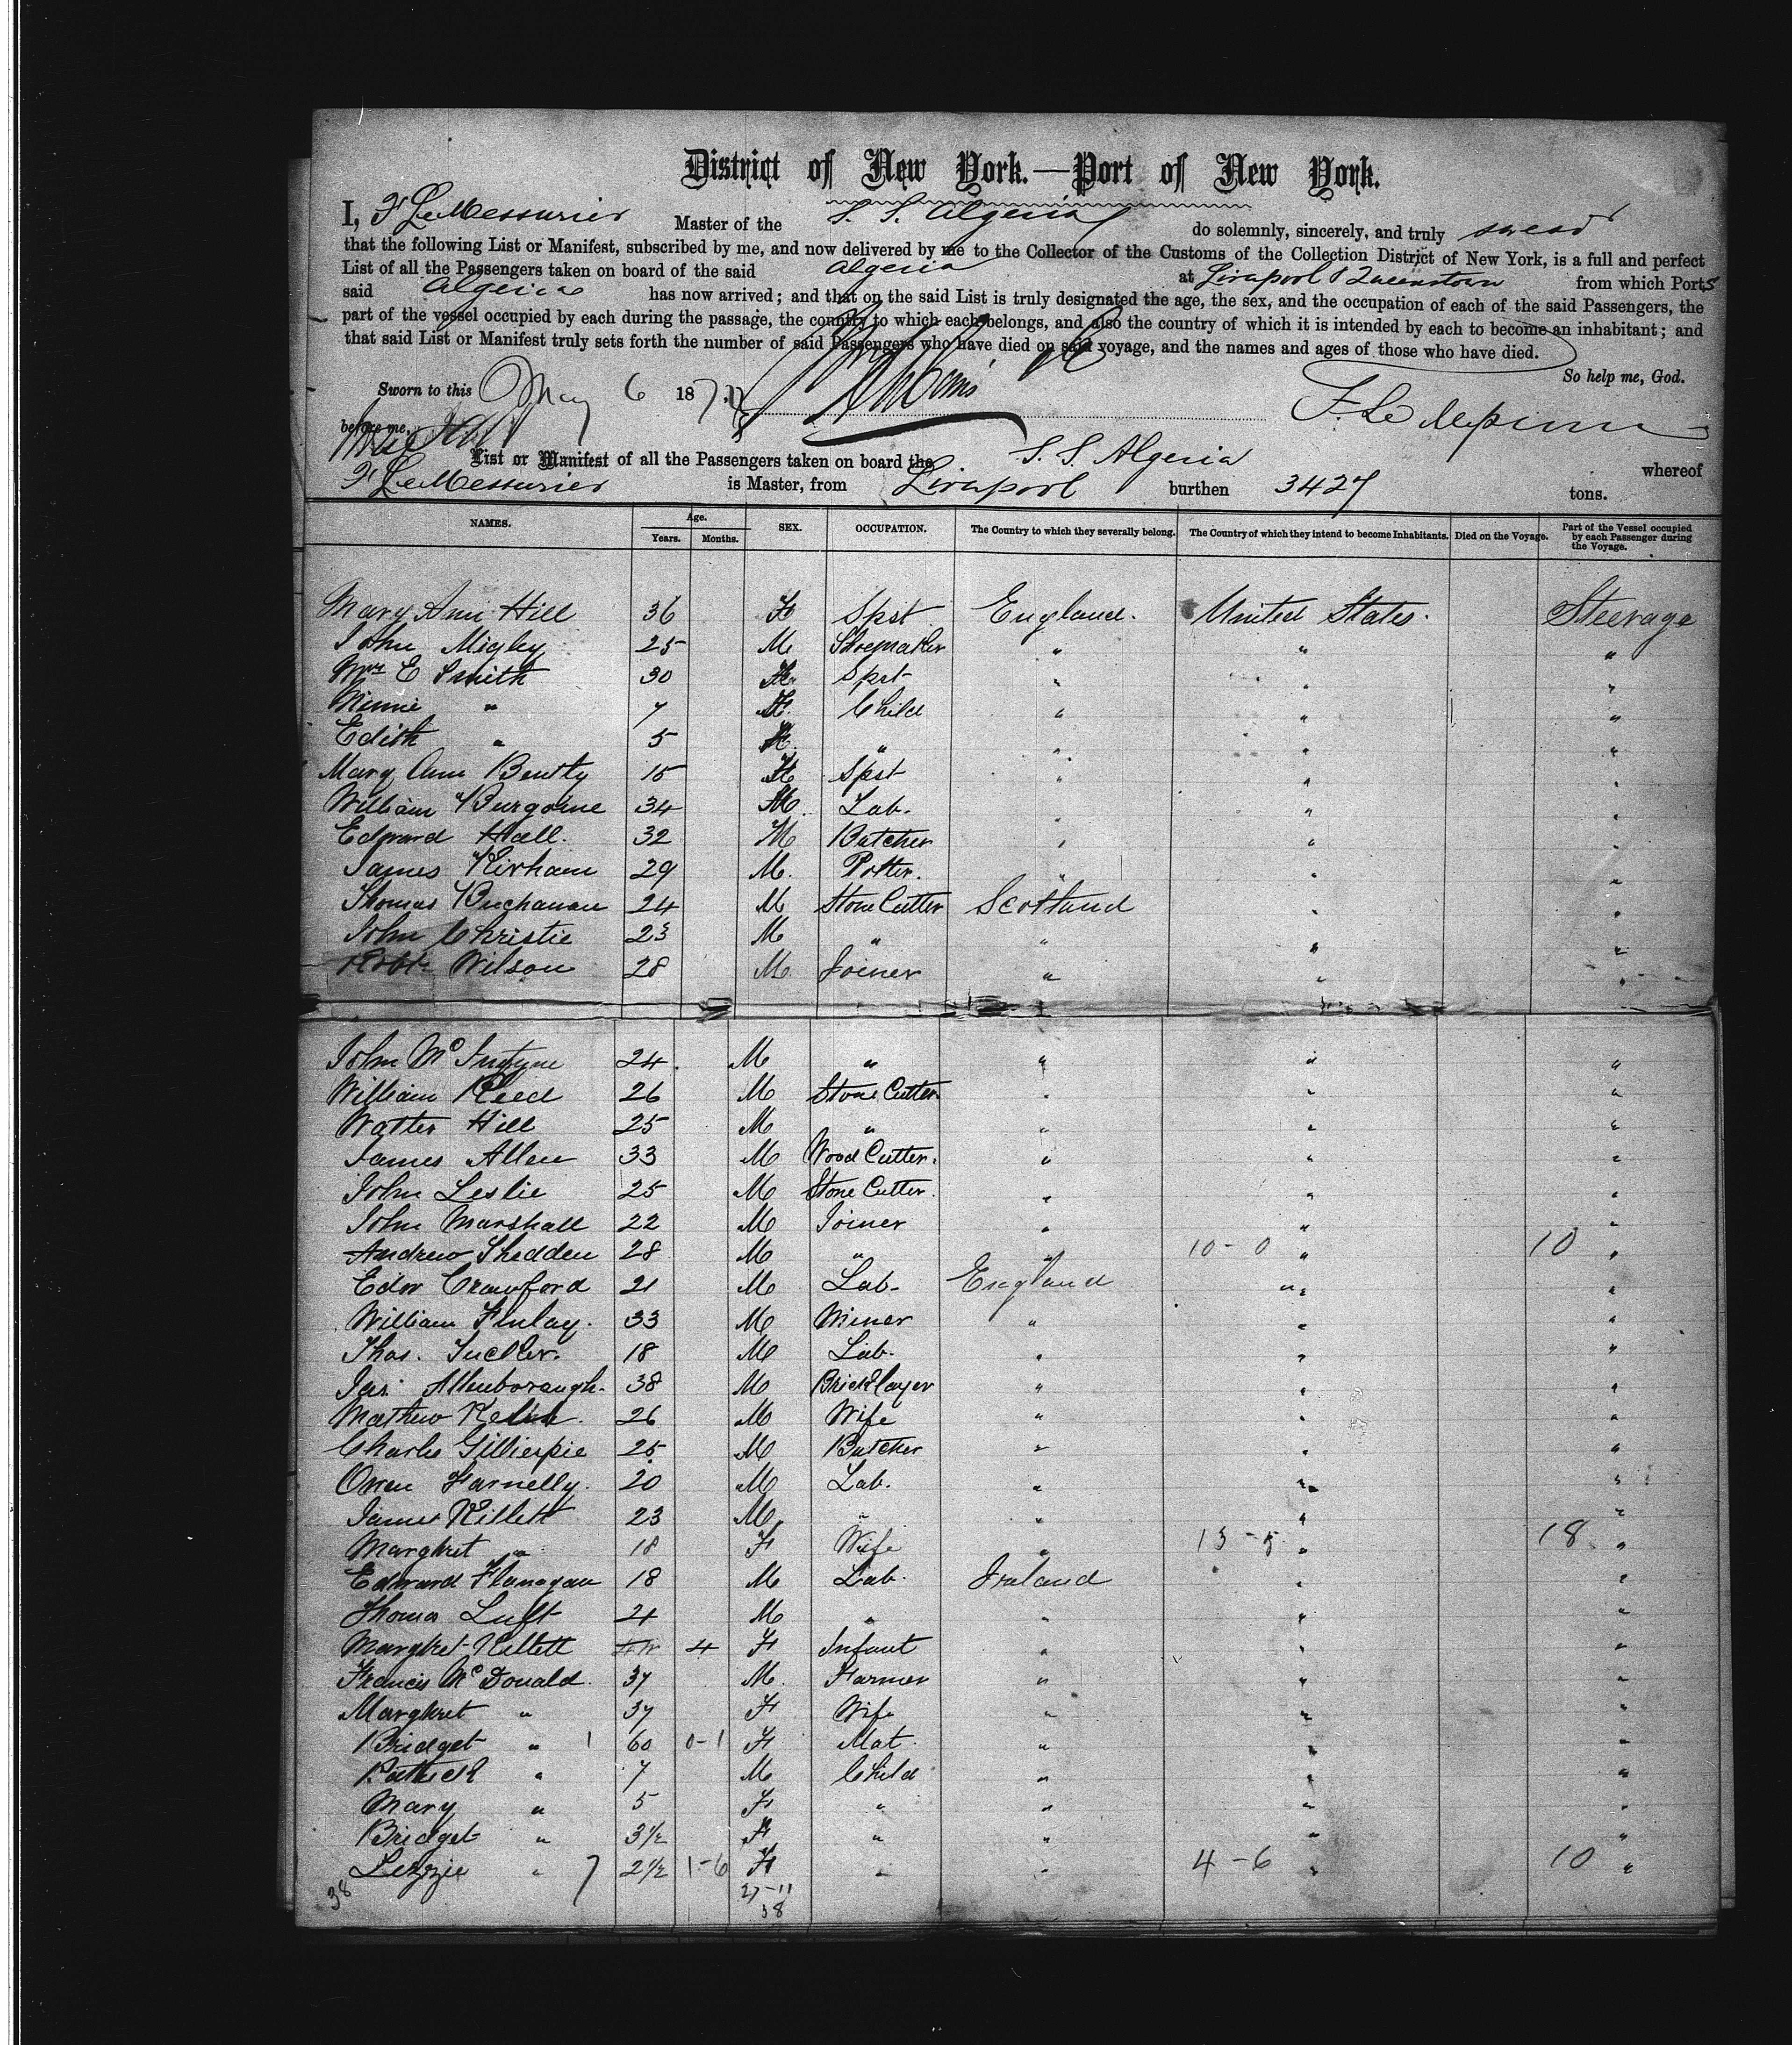 District of New York.—Port of New York.
I, F LeMessurier Master of the S. S. Algeria do solemnly, sincerely, and truly swear
that the following List or Manifest, subscribed by me, and now delivered by me to the Collector of the Customs of the Collection District of New York, is a full and perfect
List of all the Passengers taken on board of the said Algeria at Liverpool & Queenstown from which Ports
said Algeria has now arrived; and that on the said List is truly designated the age, the sex, and the occupation of each of the said Passengers, the
part of the vessel occupied by each during the passage, the country to which each belongs, and also the country of which it is intended by each to become an inhabitant; and
that said List or Manifest truly sets forth the number of said Passengers who have died on said voyage, and the names and ages of those who have died.
So help me, God.
Sworn to this May 6 187
before me,
List or Manifest of all the Passengers taken on board the S. S. Algeria whereof
F LeMessurier is Master, from Liverpool burthen 3427 tons.
NAMES. Age. Years. Months. SEX. OCCUPATION. The Country to which they severally belong. The Country of which they intend to become Inhabitants. Died on the Voyage. Part of the Vessel occupied by each Passenger during the Voyage.
Mary Ann Hill 36 F Spst England. United States. Steerage
John Migby 25 M Shoemaker " " "
Mrs E Smith 30 F Spst " " "
Minnie " 7 F. Child " " "
Edith " 5 F. " " " "
Mary Ann Bently 15 F Spst " " "
William Burgoine 34 M. Lab. " " "
Edward Hall. 32 M Butcher " " "
James Kirham 29 M. Potter. " " "
Thomas Buchanan 24 M Stone Cutter Scotland " "
John Christie 23 M " " " "
Robt Wilson 28 M Joiner " " "
John McIntyre 24 M " " " "
William Reed 26 M Stone Cutter " " "
Walter Hill 25 M " " " "
James Allen 33 M Wood Cutter. " " "
John Leslie 25 M Stone Cutter. " " "
John Marshall 22 M Joiner " " "
Andrew Shedden 28 M " " 10-0 " 10 "
Edw Crawford 21 M Lab. England " "
William Finlay. 33 M Miner " " "
Thos. 18 M Lab. " " "
Jas. Attenborough. 38 M Bricklayer " " "
Mathew 26 M Wife " " "
Charles Gillierpie 25 M Butcher " " "
Owen Farnelly. 20 M Lab. " " "
James Killett 23 M " " " "
Margkret " 18 F Wife " 13-5 " 18 "
Edward Flanagan 18 M Lab. Ireland " "
Thomas Luft 21 M " " " "
Margkret Killett 4 F Infant " " "
Francis McDonald. 37 M. Farmer " " "
Margkret " 37 F Wife " " "
Bridget " 1 60 0-1 F Mat. " " "
Patrick " 7 M Child " " "
Mary " 5 F " " " "
Bridget " 3½ F " " " "
Lezzie " 7 2½ 1-6 F " " 4-6 " 10 "
38 27-11
38